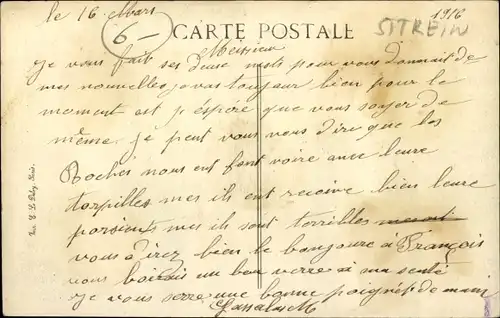 le 16 Mars
1916
6-
CARTE POSTALE
SITREIN
Messieur
Je vous fait ses deuse mots pour vous donnait de
mes nouvelles je vas toujour bien pour le
moment est p éspére que vous soyer de
même. je peut vous vous dire que les
Boches nous ent font voire avec leure
torpilles mes ils ent recoive bien leure
porsients mes ils sont terribles
vous direz bien le bonjoure à François
vous boirais un bon verre à ma senté
Je vous serre une bonne poignés de main